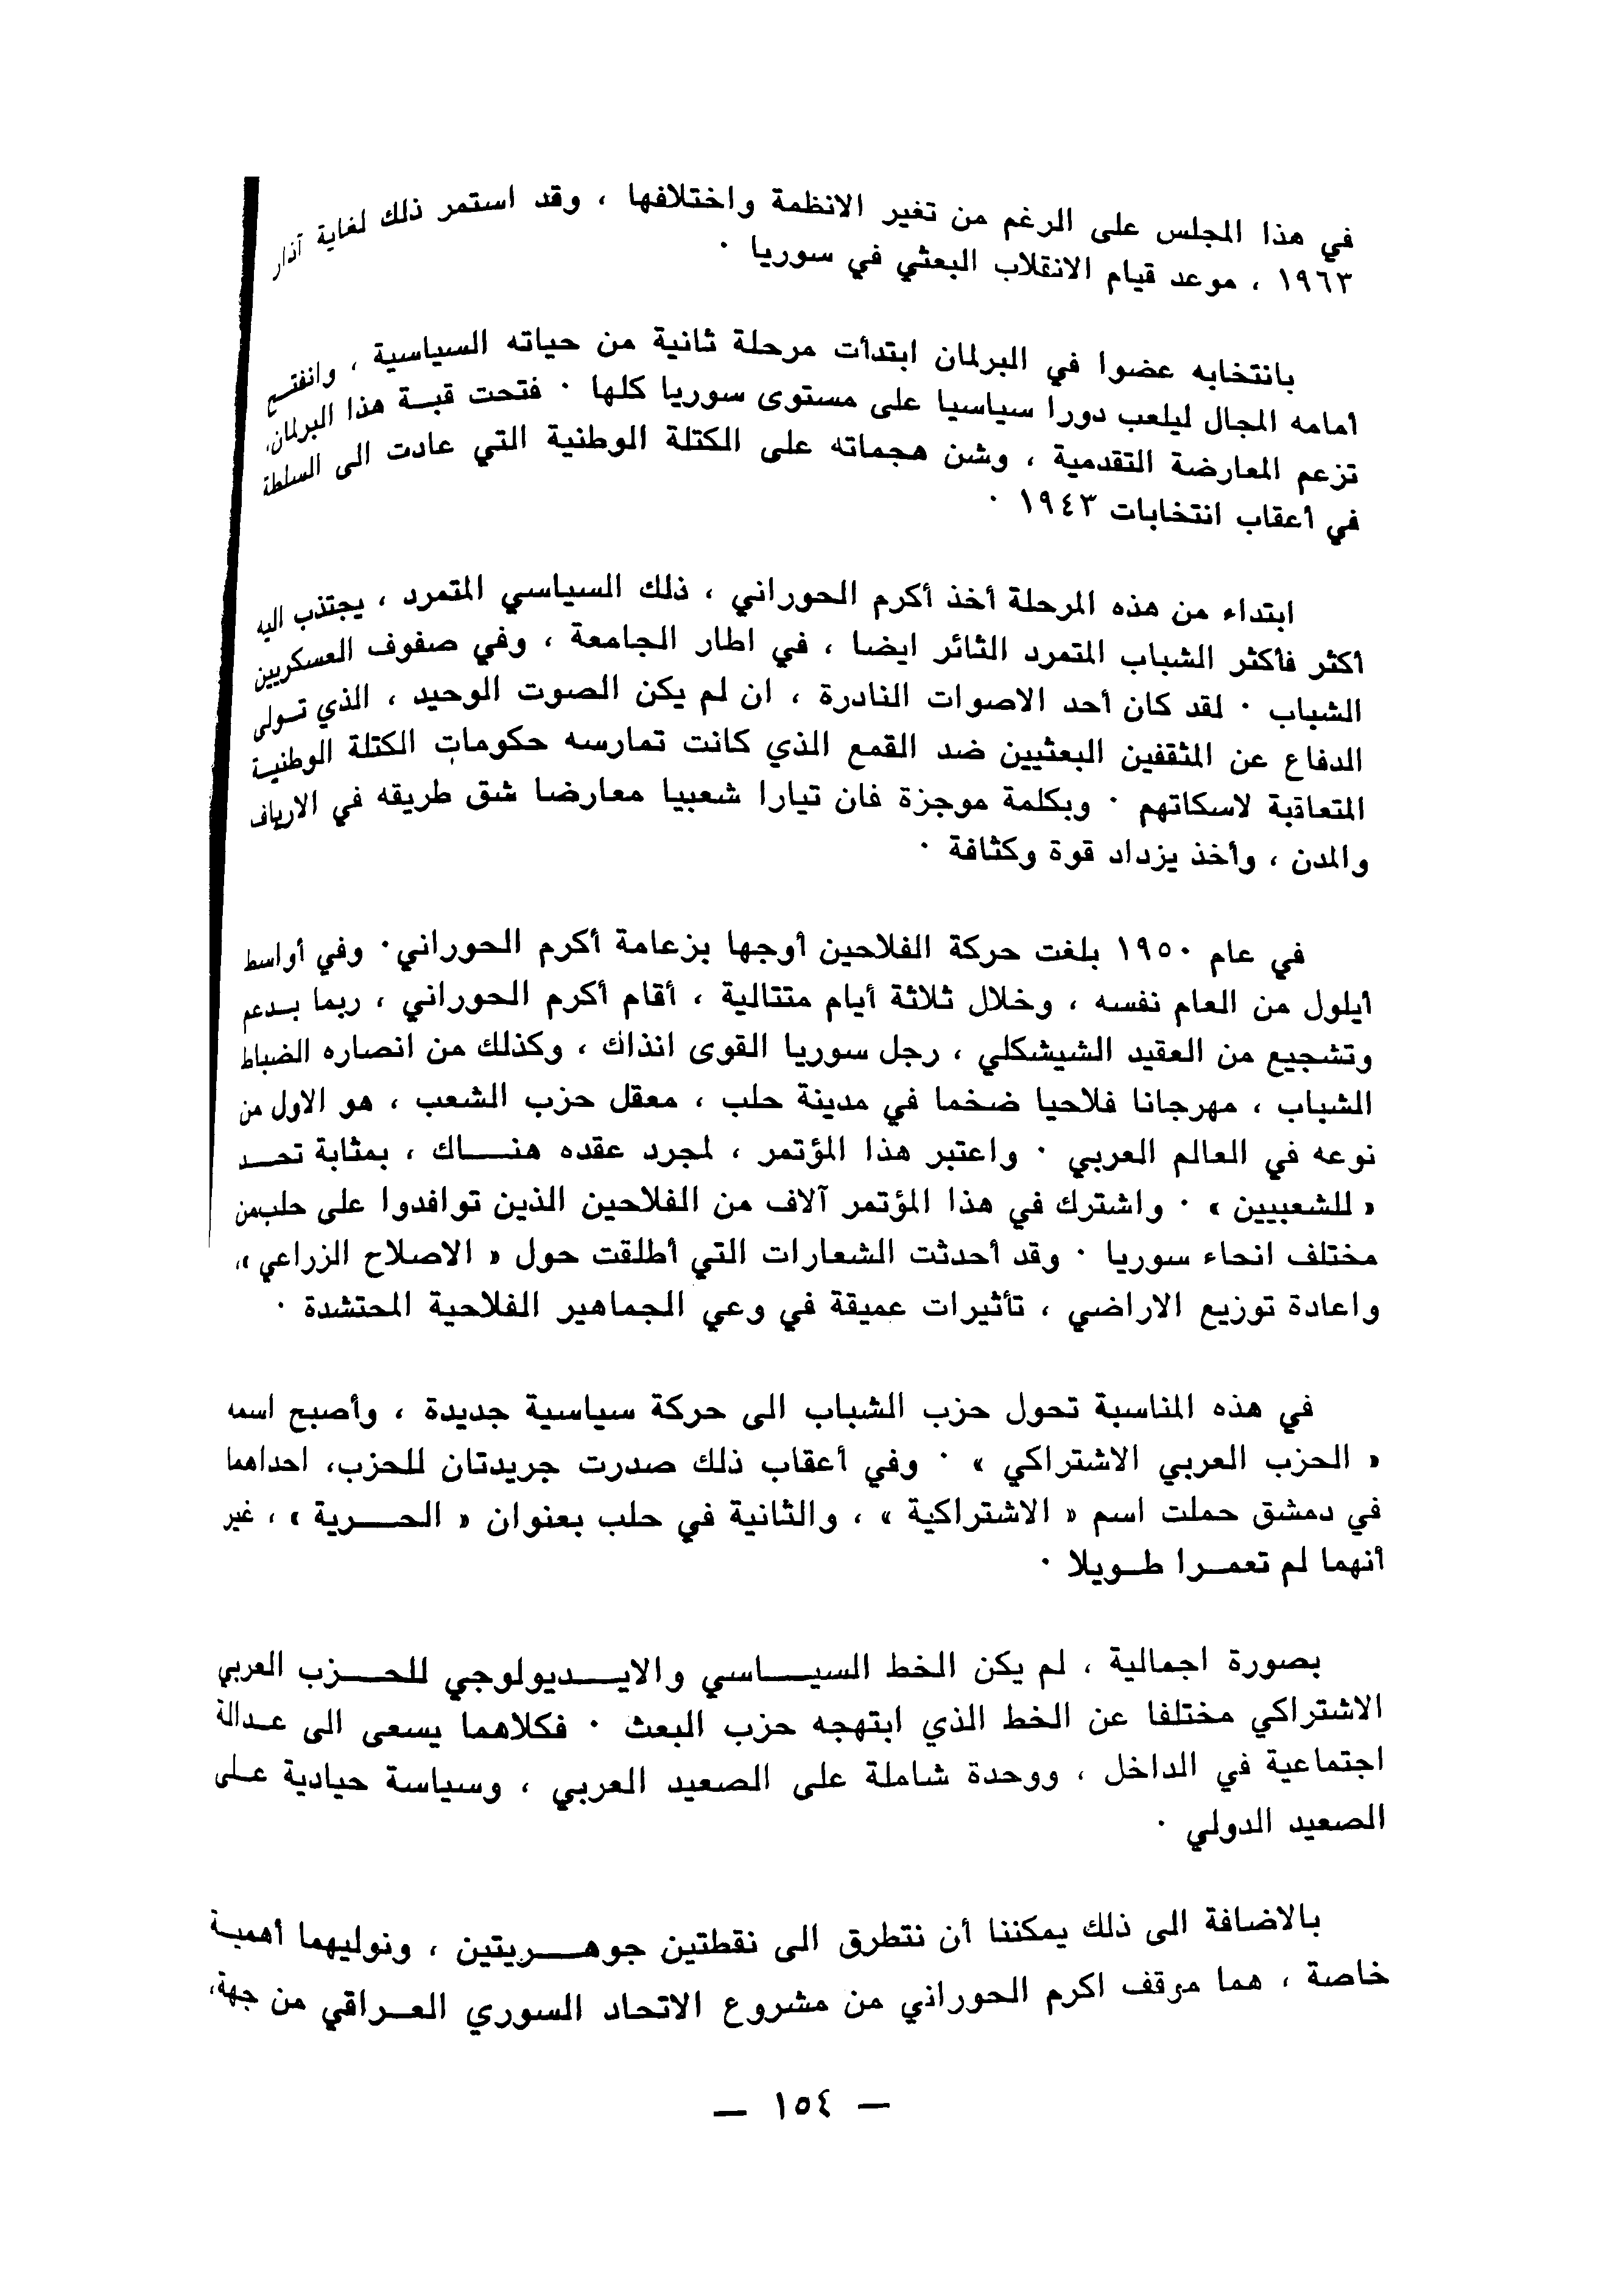 في هذا المجلس على الرغم من تغير الانظمة واختلافها ، وقد استمر ذلك لغاية آذار
١٩٦٣ ، موعد قيام الانقلاب البعثي في سوريا ٠
بانتخابه عضوا في البرلمان ابتدأت مرحلة ثانية من حياته السياسية ، وانفتح
أمامه المجال ليلعب دورا سياسيا على مستوى سوريا كلها ٠ فتحت قبة هذا البرلمان،
تزعم المعارضة التقدمية ، وشن هجماته على الكتلة الوطنية التي عادت الى السلطة
في أعقاب انتخابات ١٩٤٣ ٠
ابتداء من هذه المرحلة أخذ أكرم الحوراني ، ذلك السياسي المتمرد ، يجتذب اليه
أكثر فأكثر الشباب المتمرد الثائر ايضا ، في اطار الجامعة ، وفي صفوف العسكريين
الشباب ٠ لقد كان أحد الاصوات النادرة ، ان لم يكن الصوت الوحيد ، الذي تولى
الدفاع عن المثقفين البعثيين ضد القمع الذي كانت تمارسه حكومات الكتلة الوطنية
المتعاقبة لاسكاتهم ٠ وبكلمة موجزة فان تيارا شعبيا معارضا شق طريقه في الارياف
والمدن ، وأخذ يزداد قوة وكثافة ٠
في عام ١٩٥٠ بلغت حركة الفلاحين أوجها بزعامة أكرم الحوراني٠ وفي أواسط
أيلول من العام نفسه ، وخلال ثلاثة أيام متتالية ، أقام أكرم الحوراني ، ربما بدعم
وتشجيع من العقيد الشيشكلي ، رجل سوريا القوى انذاك ، وكذلك من انصاره الضباط
الشباب ، مهرجانا فلاحيا ضخما في مدينة حلب ، معقل حزب الشعب ، هو الاول من
نوعه في العالم العربي ٠ واعتبر هذا المؤتمر ، لمجرد عقده هنـــاك ، بمثابة تحــد
« للشعبيين » ٠ واشترك في هذا المؤتمر آلاف من الفلاحين الذين توافدوا على حلب من
مختلف انحاء سوريا ٠ وقد أحدثت الشعارات التي أطلقت حول « الاصلاح الزراعي »،
واعادة توزيع الاراضي ، تأثيرات عميقة في وعي الجماهير الفلاحية المحتشدة ٠
في هذه المناسبة تحول حزب الشباب الى حركة سياسية جديدة ، وأصبح اسمه
« الحزب العربي الاشتراكي » ٠ وفي أعقاب ذلك صدرت جريدتان للحزب، احداهما
في دمشق حملت اسم « الاشتراكية » ، والثانية في حلب بعنوان « الحـــرية » ، غير
أنهما لم تعمـرا طـويلا ٠
بصورة اجمالية ، لم يكن الخط السيـــاسي والايـــديولوجي للحـــزب العربي
الاشتراكي مختلفا عن الخط الذي ابتهجه حزب البعث ٠ فكلاهما يسعى الى عـدالة
اجتماعية في الداخل ، ووحدة شاملة على الصعيد العربي ، وسياسة حيادية عـلى
الصعيد الدولي ٠
بالاضافة الى ذلك يمكننا أن نتطرق الى نقطتين جوهـــريتين ، ونوليهما أهميـة
خاصة ، هما موقف اكرم الحوراني من مشروع الاتحاد السوري العـراقي من جهة،
— ١٥٤ —